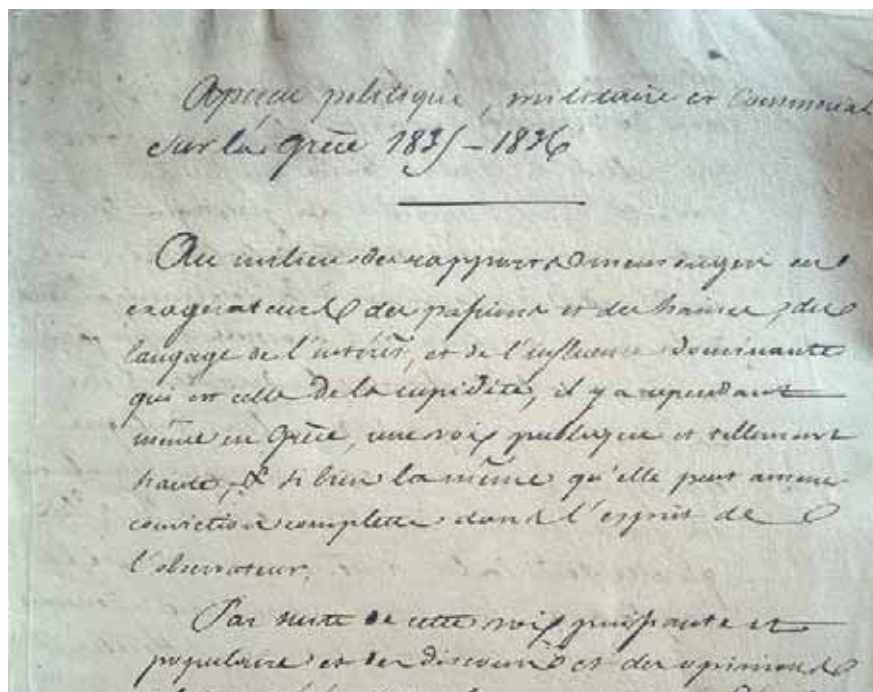 Apercu politique, militaire et Commercial
sur la Grèce 1835-1836
Au milieu des rapports mensongers et
exagerateurs des passions et des haines, du
langage de l'intérêt, et de l'influence dominante
qui est celle de la cupidité, il y a cependant
même en Grèce, une voix publique et tellement
haute, & si bien la même qu'elle peut amener
conviction complette dans l'esprit de
l'observateur.
Par suite de cette voix puissante et
populaire et des discours et des opinions